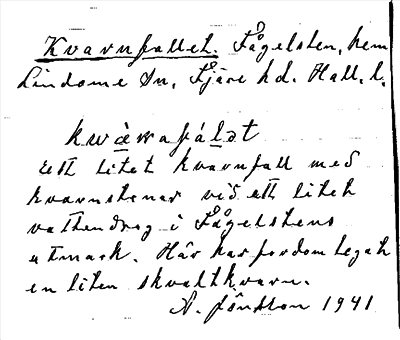 Kvarnfallet. Fågelsten, hem
Lindome sn, Fjäre hd. Hall. l.
kwà̱rnafáḻət
Ett litet kvarnfall med
kvarnstenar vid ett litet
vattendrag i Fågelstens
utmark. Här har fordom legat
en liten skvaltkvarn.
A. Jönsson 1941